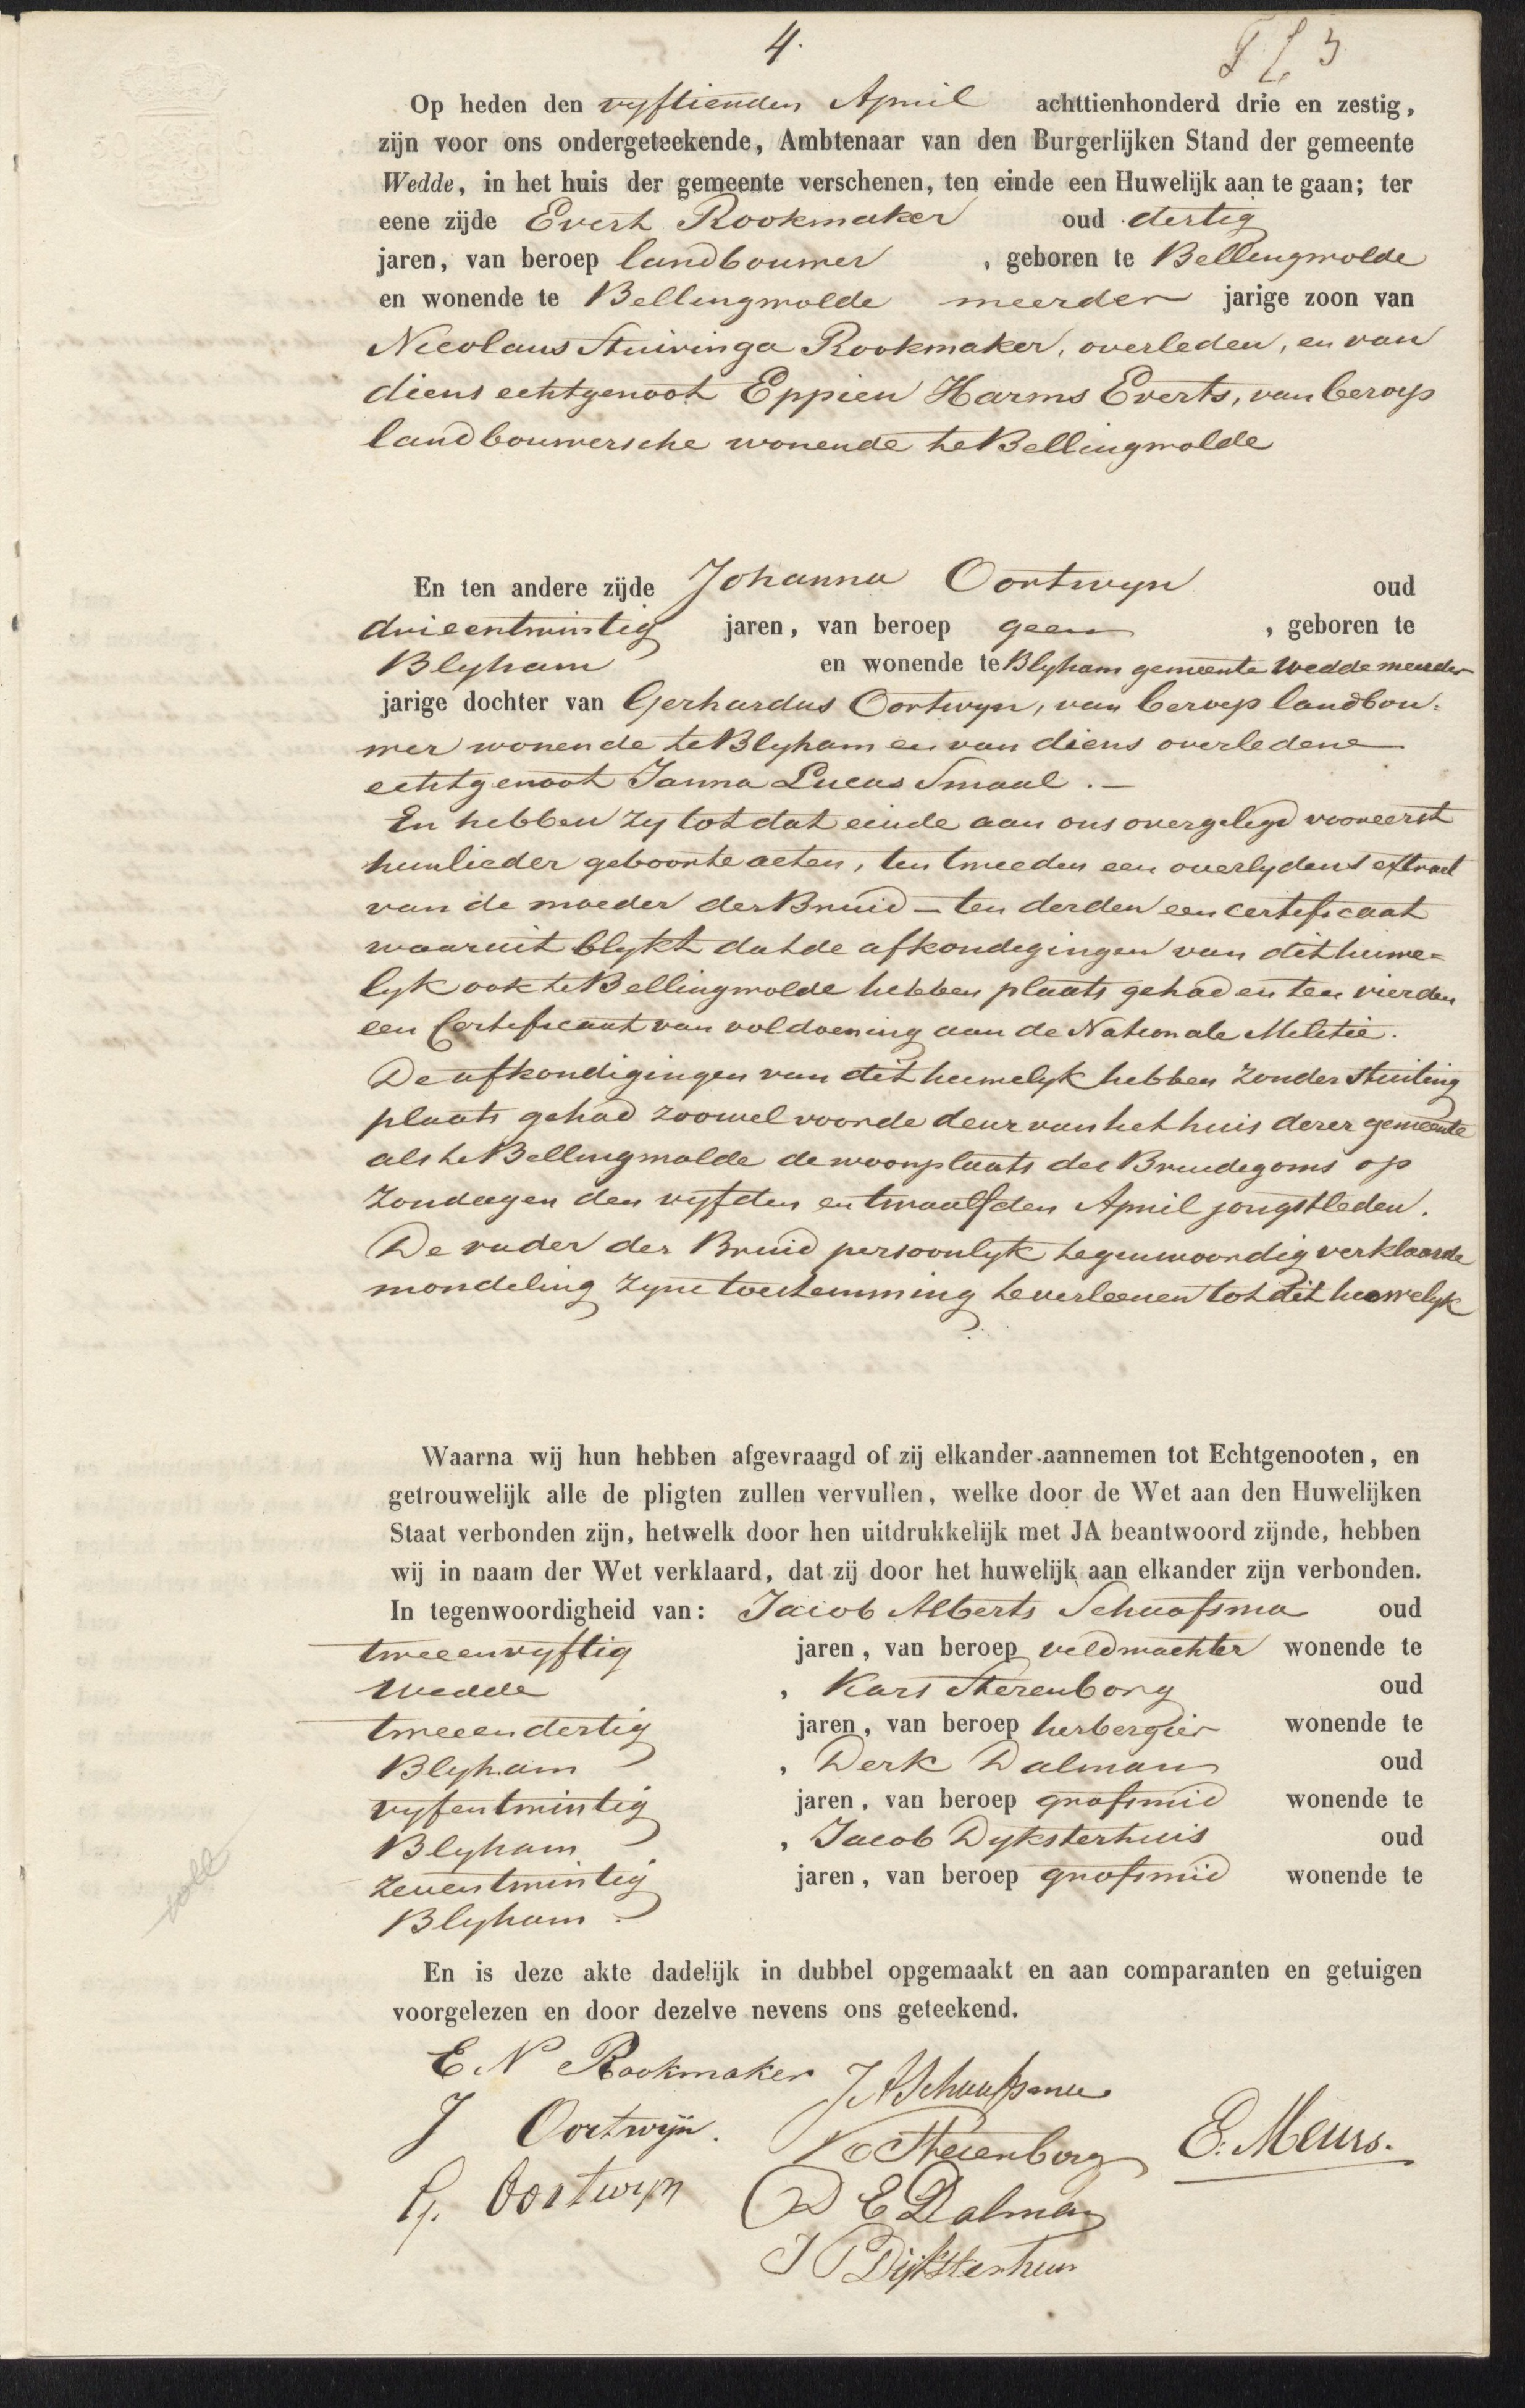 4.
Op heden den vyftienden April achttienhonderd drie en zestig,
zijn voor ons ondergeteekende, Ambtenaar van den Burgerlijken Stand der gemeente
Wedde, in het huis der gemeente verschenen, ten einde een Huwelijk aan te gaan; ter
eene zijde Evert Rookmaker oud dertig
jaren, van beroep landbouwer , geboren te Bellingwolde
en wonende te Bellingwolde meerder jarige zoon van
Nicolaus Stuivinga Rookmaker, overleden, en van
diens echtgenoot Eppien Harms Everts, van beroep
landbouwersche wonende te Bellingwolde
En ten andere zijde Johanna Oortwyn oud
drieentwintig jaren, van beroep geen , geboren te
Blyham en wonende te Blyham gemeente Wedde meerder
jarige dochter van Gerhardus Oortwyn, van beroep landbou-
wer wonende te Blyham en van diens overledene
echtgenoot Janna Lucas Smaal. –
En hebben zy tot dat einde aan ons overgelegd vooreerst
hunlieder geboorte acten, ten tweeden een overlydens extract
van de moeder der Bruid – ten derden een certificaat
waaruit blykt dat de afkondigingen van dit huwe=
lyk ook te Bellingwolde hebben plaats gehad en ten vierden
een Certificaat van voldoening aan de Nationale Militie.
De afkondigingen van dit huwelyk hebben zonder stuiting
plaats gehad zoowel voor de deur van het huis dezer gemeente
als te Bellingwolde de woonplaats des Bruidegoms op
Zondagen den vyfden en twaalfden April jongstleden.
De vader der Bruid persoonlyk tegenwoordig verklaarde
mondeling zyne toestemming te verleenen tot dit huwelyk
Waarna wij hun hebben afgevraagd of zij elkander aannemen tot Echtgenooten, en
getrouwelijk alle de pligten zullen vervullen, welke door de Wet aan den Huwelijken
Staat verbonden zijn, hetwelk door hen uitdrukkelijk met JA beantwoord zijnde, hebben
wij in naam der Wet verklaard, dat zij door het huwelijk aan elkander zijn verbonden.
In tegenwoordigheid van: Jacob Alberts Schaafsma oud
tweeenvyftig jaren, van beroep veldwachter wonende te
Wedde , Kars Sterenborg oud
tweeendertig jaren, van beroep herbergier wonende te
Blyham , Derk Dalman oud
vyfentwintig jaren, van beroep grofsmid wonende te
Blyham , Jacob Dyksterhuis oud
zeventwintig jaren, van beroep grofsmid wonende te
Blyham.
En is deze akte dadelijk in dubbel opgemaakt en aan comparanten en getuigen
voorgelezen en door dezelve nevens ons geteekend.
E N Rookmaker J A Schaafsma
J Oortwijn. K Sterenborg E. Meurs.
G. Oortwyn D E Dalman
J P Dijksterhuis